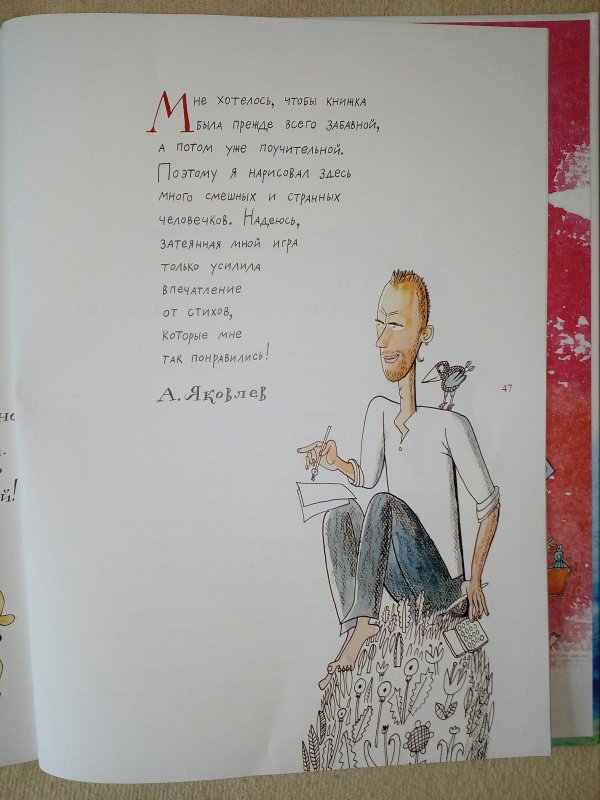 Мне хотелось, чтобы книжка
была прежде всего забавной,
а потом уже поучительной.
Поэтому я нарисовал здесь
много смешных и странных
человечков. Надеюсь,
затеянная мной игра
только усилила
впечатление
от стихов,
которые мне
так понравились!
А. Яковлев
47